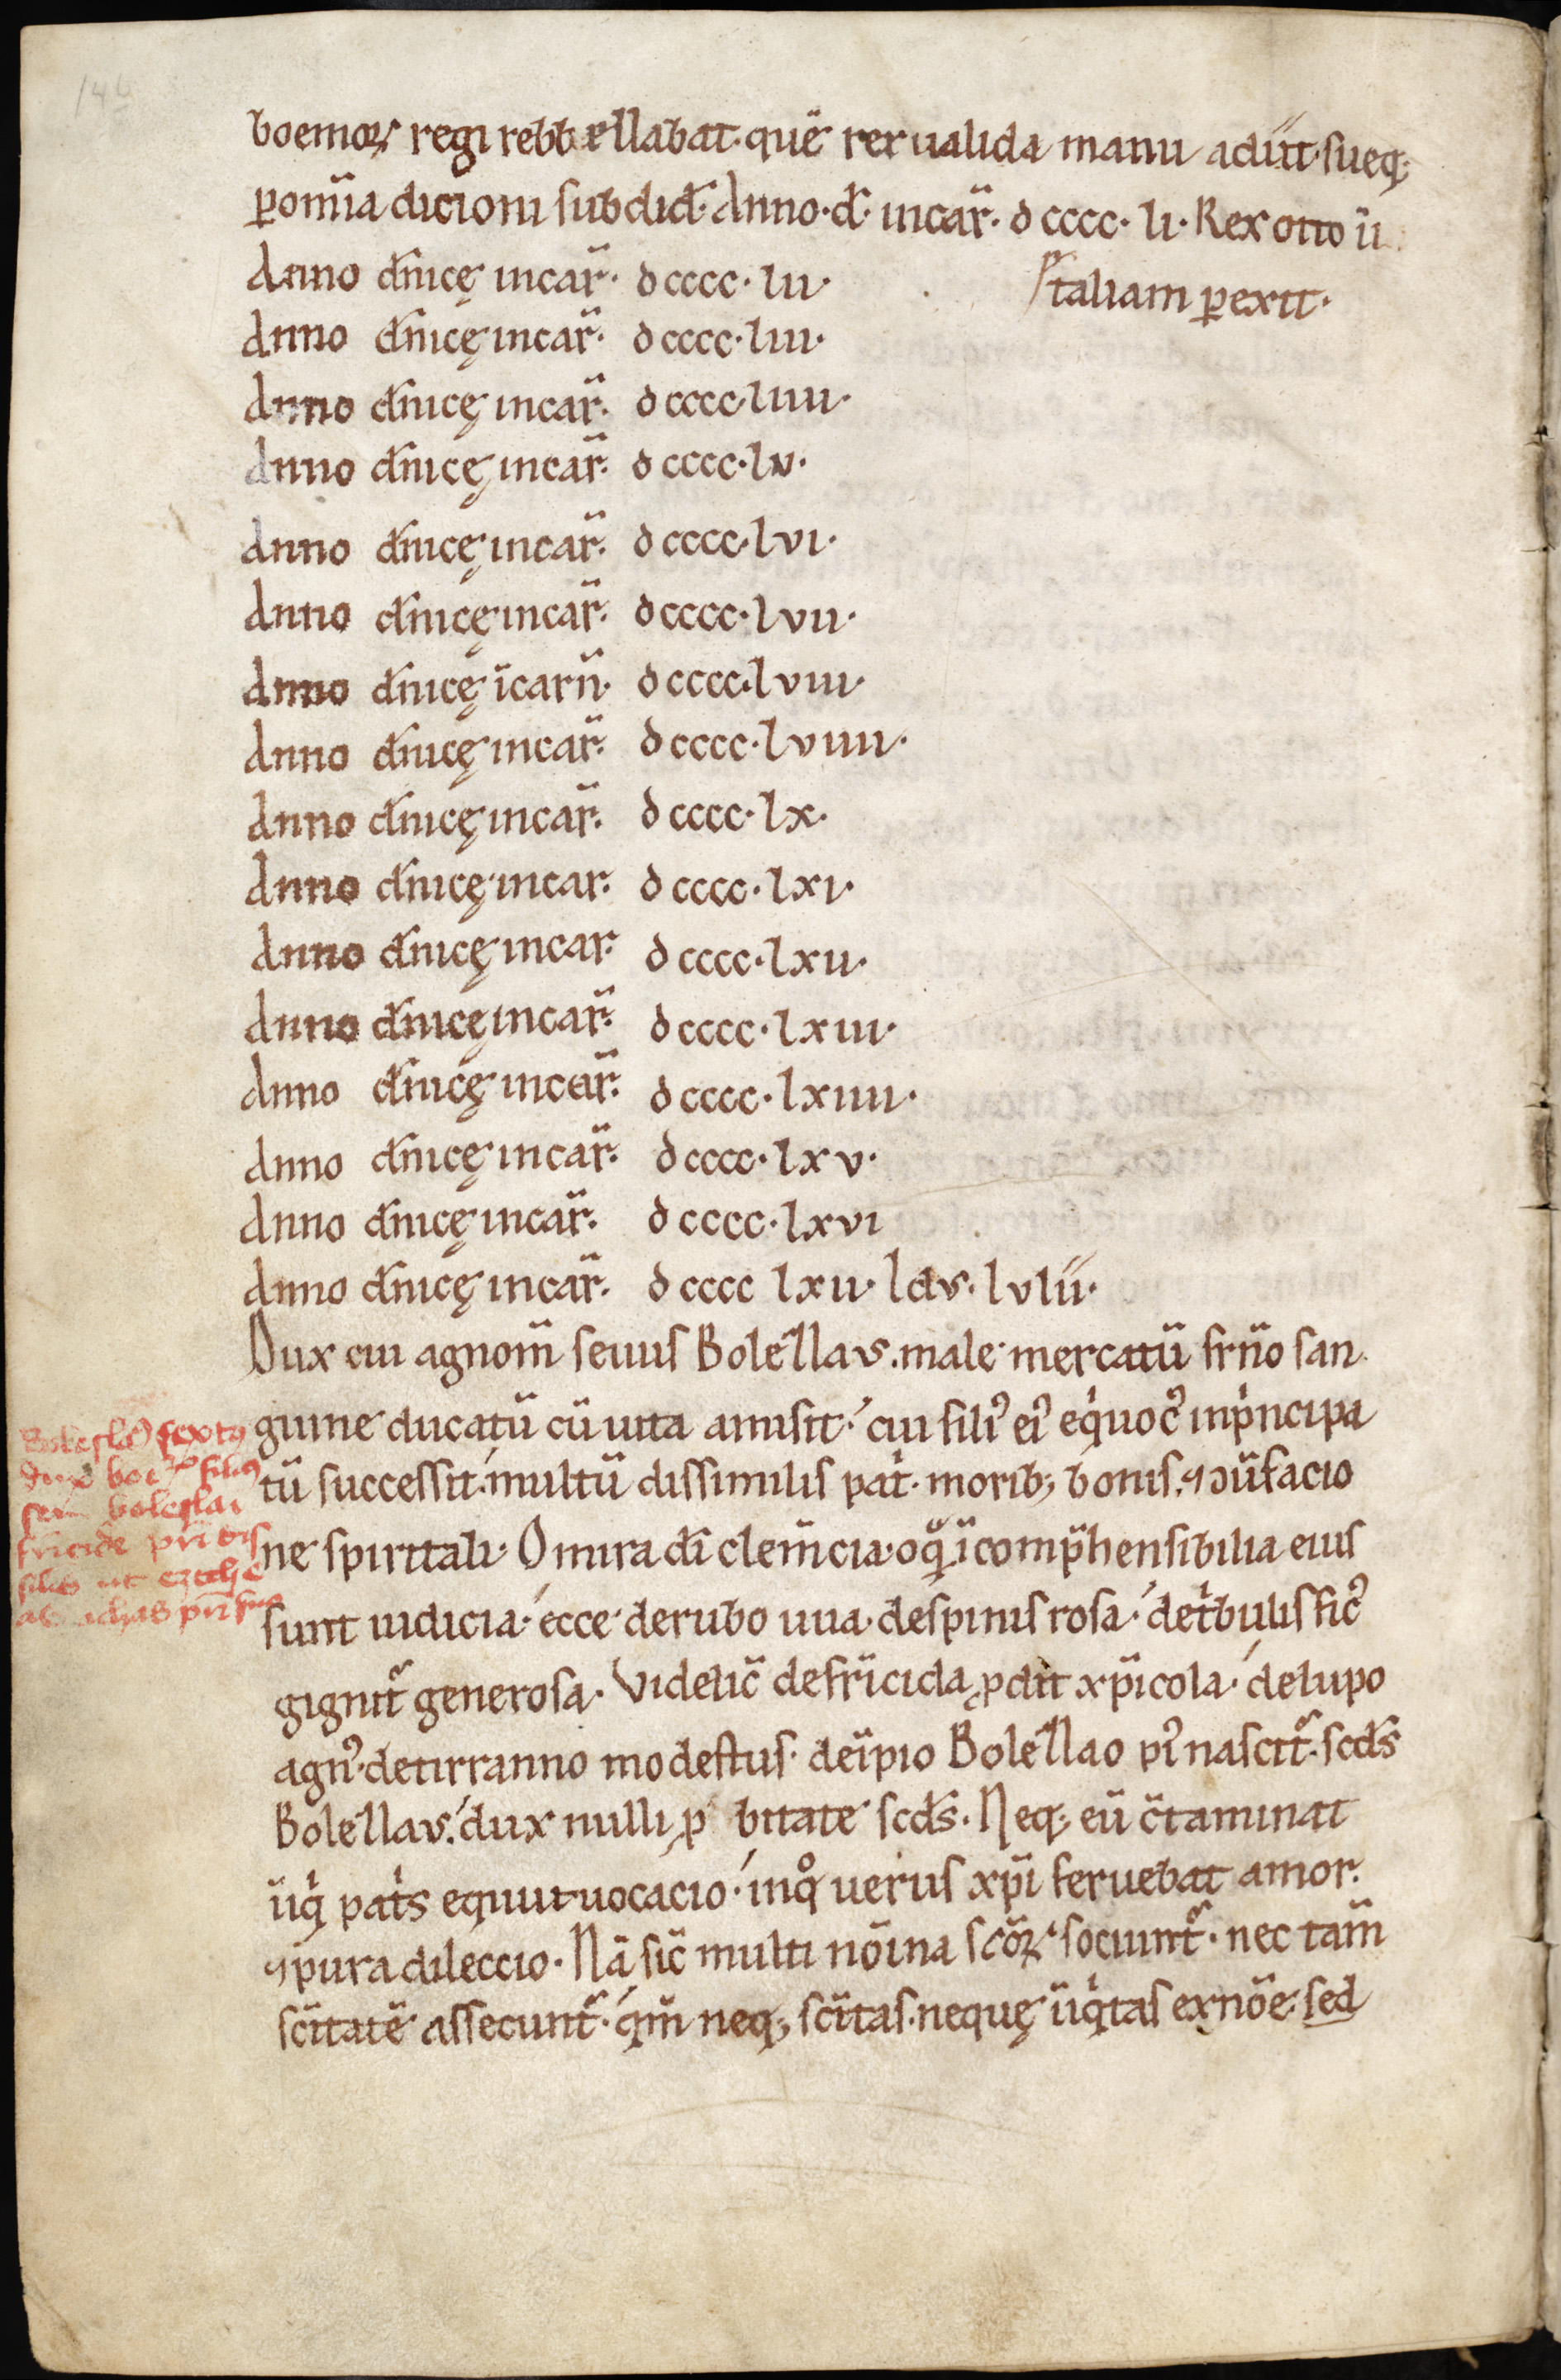 boemoꝝ regi rebbellabat. quē rex ualida manu adiit. sueq;
ꝑ omīa dicioni subdid̄. Anno. d̄. incar̄. dcccc. li. Rex otto ī
Anno d̄nicę incar̄. dcccc. lii. Italiam ꝑexit.
Anno d̄nicę incar̄. dcccc. liii.
Anno d̄nicę incar̄. dcccc. liiii.
Anno d̄nicę incar̄. dcccc. lv.
Anno d̄nicę incar̄. dcccc. lvi.
Anno d̄nicę incar̄. dcccc. lvii.
Anno d̄nicę īcarn̄. dcccc. lviii.
Anno d̄nicę incar̄. dcccc. lviiii.
Anno d̄nicę incar̄. dcccc. lx.
Anno d̄nicę incar. dcccc. lxi.
Anno d̄nicę incar. dcccc. lxii.
Anno d̄nicę incar̄. dcccc. lxiii.
Anno d̄nicę incar̄. dcccc. lxiiii.
Anno d̄nicę incar̄. dcccc. lxv.
Anno d̄nicę incar̄. dcccc. lxvi
Anno d̄nicę incar̄. dcccc lxvii. Id̄vs. Ivlii.
Dux cui agnom̄ seuus Bolezlavs. male mercatū fr̄no san
guine ducatū cū uita amisit. cui filiꝰ eiꝰ eqͥuocꝰ in pͥncipa
tū successit. multū dissimilis patͥ. morib; bonis. ⁊ ɔ̄ū̄facio
ne spiritali. O mira dī clem̄cia. o qͣ̄ īcomp̄hensibilia eius
sunt iudicia. ecce de rubo uua. de spinis rosa. de tͥbulis ficꝰ
gignitᷣ generosa. Videlic̄ de fr̄icida ꝓdit xp̄icola. de lupo
agnꝰ. de tirranno modestus. de īpio Bolezlao piꝰ nascitᷣ. sc̄ds
Bolezlavs. dux nulli ꝓbitate sc̄ds. Neq; eū c̄taminat
īiqͥ patͥs equiuocacio. in qͦ uerus xp̄i feruebat amor.
⁊ pura dileccio. Nā sic̄ multi nōina sc̄oꝝ sociuntᷣ. nec tam̄
sc̄itatē assecuntᷣ. qm̄ neq; sc̄itas. nequę īiqͥtas ex nōe sed
Boleslaꝰ sextꝰ
dux boeꝝ filiꝰ
seui boleslai